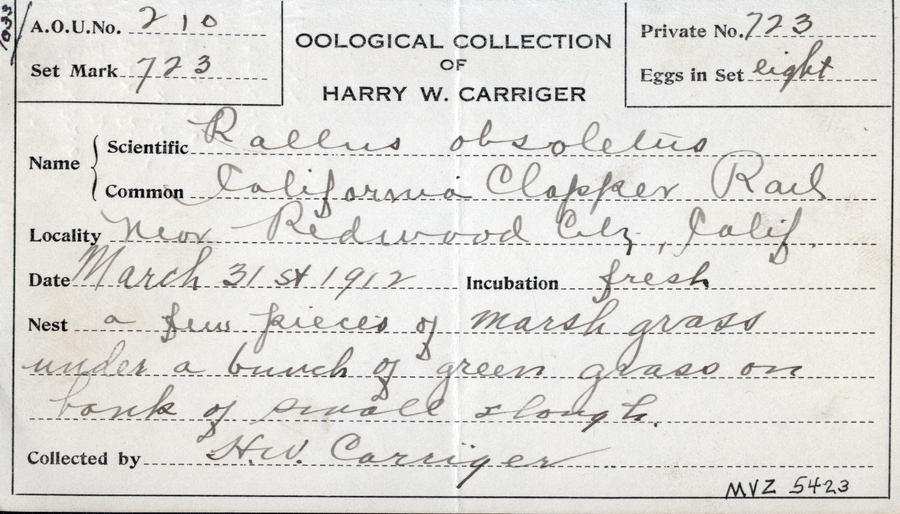 1033
A.O.U.No. 210
Set Mark 723
OOLOGICAL COLLECTION
OF
HARRY W. CARRIGER
Private No. 723
Eggs in Set eight
Name
Scientific Rallus obsoletus
Common California Clapper Rail
Locality Near Redwood City, Calif.
Date March 31st 1912 Incubation fresh
Nest a few pieces of marsh grass
under a bunch of green grass on
bank of small slough.
Collected by H.W. Carriger
MVZ 5423